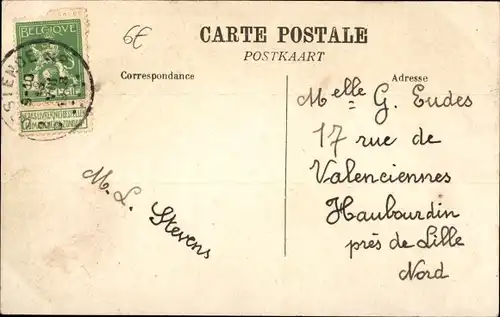 BELGIQUE
6€
CARTE POSTALE
POSTKAART
Correspondance
Adresse
Melle G. Eudes
17 rue de
Valenciennes
Haubourdin
près de Lille
Nord
M. L. Stevens